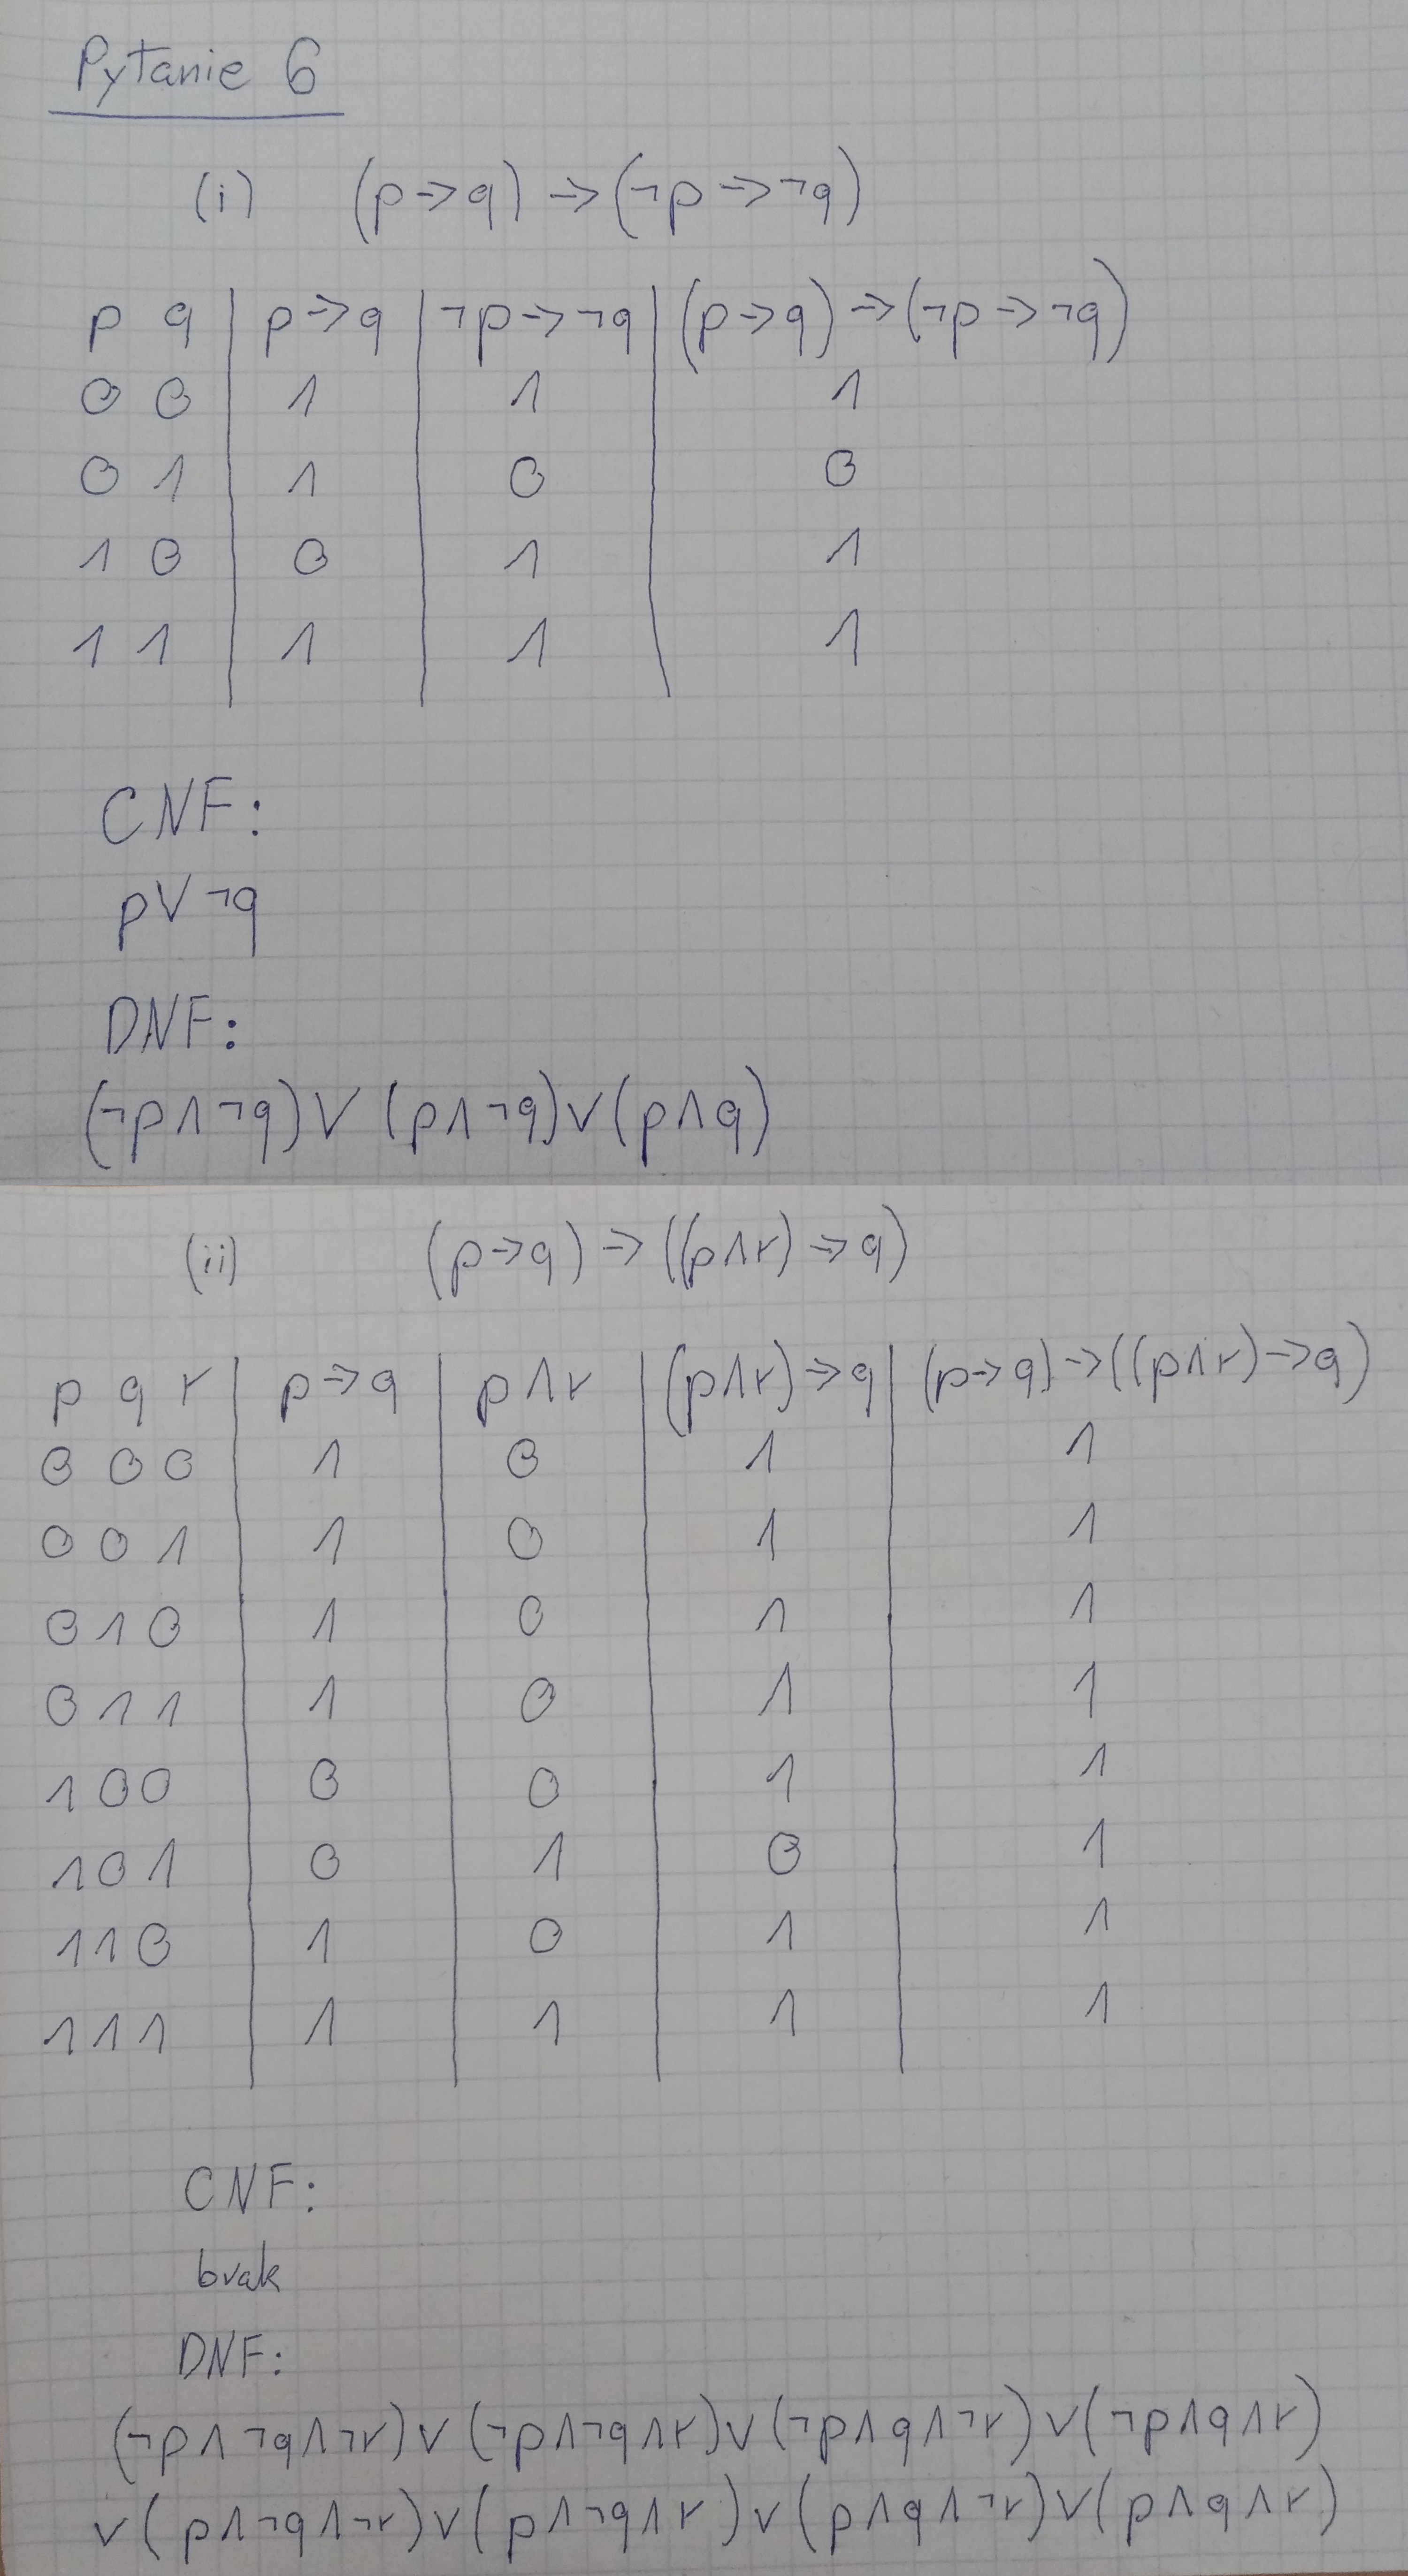 Pytanie 6
(i) (p→q)→(¬p→¬q)
p q | p→q | ¬p→¬q | (p→q)→(¬p→¬q)
0 0 | 1 | 1 | 1
0 1 | 1 | 0 | 0
1 0 | 0 | 1 | 1
1 1 | 1 | 1 | 1
CNF:
p∨¬q
DNF:
(¬p∧¬q)∨(p∧¬q)∨(p∧q)
(ii) (p→q)→((p∧r)→q)
p q r | p→q | p∧r | (p∧r)→q | (p→q)→((p∧r)→q)
0 0 0 | 1 | 0 | 1 | 1
0 0 1 | 1 | 0 | 1 | 1
0 1 0 | 1 | 0 | 1 | 1
0 1 1 | 1 | 0 | 1 | 1
1 0 0 | 0 | 0 | 1 | 1
1 0 1 | 0 | 1 | 0 | 1
1 1 0 | 1 | 0 | 1 | 1
1 1 1 | 1 | 1 | 1 | 1
CNF:
brak
DNF:
(¬p∧¬q∧¬r)∨(¬p∧¬q∧r)∨(¬p∧q∧¬r)∨(¬p∧q∧r)
∨(p∧¬q∧¬r)∨(p∧¬q∧r)∨(p∧q∧¬r)∨(p∧q∧r)